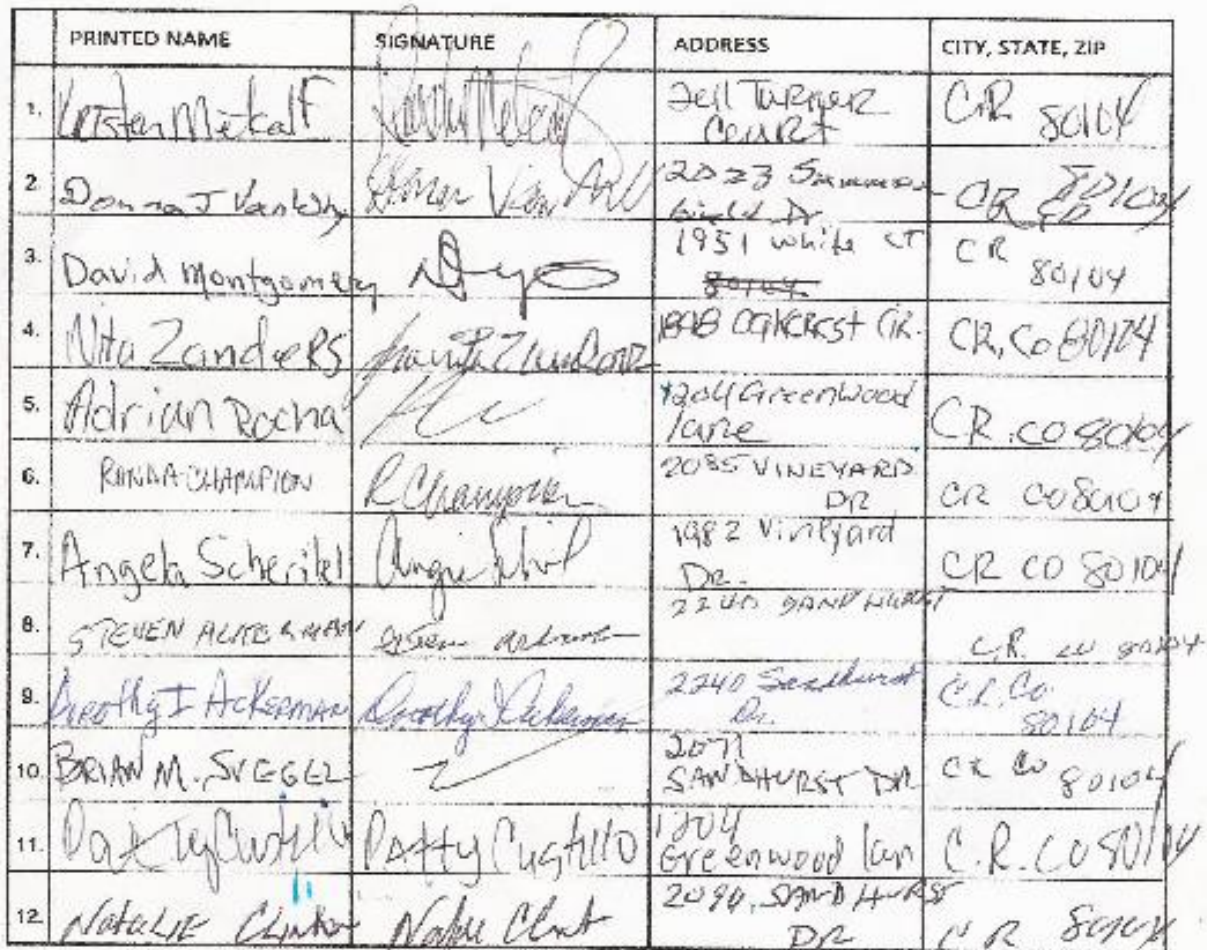 PRINTED NAME SIGNATURE ADDRESS CITY, STATE, ZIP
1. Kristen Metcalf Turner Court CR 80104
2. Donna J 2023 Summer field Dr. CR 80104
3. David Montgomery 1951 White CT 80104 CR 80104
4. Nita Zanders 1898 OAKCREST CIR. CR, Co 80104
5. Adrian Rocha 1204 Greenwood lane CR. CO 80104
6. RANDA CHAMPION R Champion 2085 VINEYARD DR CR CO 80104
7. Angela Angie 1982 Vineyard Dr. CR CO 80104
8. STEVEN 2240 SANDHURST C.R. CO 80104
9. Dorothy I Ackerman Dorothy I Ackerman 2240 Sandhurst Dr. C.R. Co. 80104
10. BRIAN M. 2071 SANDHURST DR CR CO 80104
11. Patty Castillo Patty Castillo 1204 Greenwood lan C.R. CO 80104
12. Natalie 2090 SANDHURST DR CR 80104